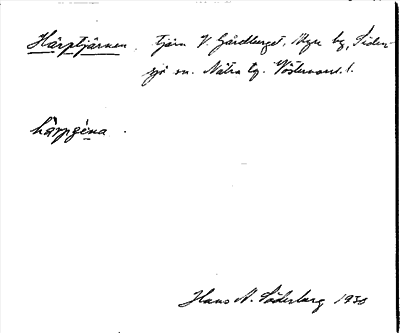 Härptjärnen, tjärn V. Gårdberget, Myre by, Siden-
sjö sn. Nätra tg. Västernorrl. l.
härpgèna.
Hans A. Söderberg 1930